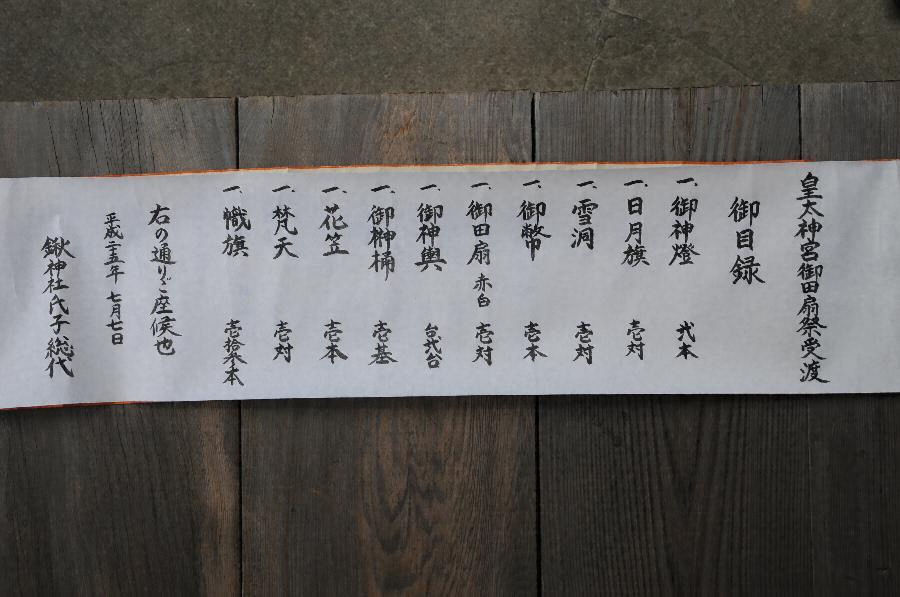 皇太神宮御田扇祭受渡
御目録
一、御神燈 弐本
一、日月旗 壱対
一、雪洞 壱対
一、御幣 壱本
一、御田扇 赤白 壱対
一、御神輿 台弐台
一、御榊桶 壱基
一、花笠 壱本
一、梵天 壱対
一、幟旗 壱拾参本
右の通りご座候也
平成二五年 七月七日
鍬神社氏子総代